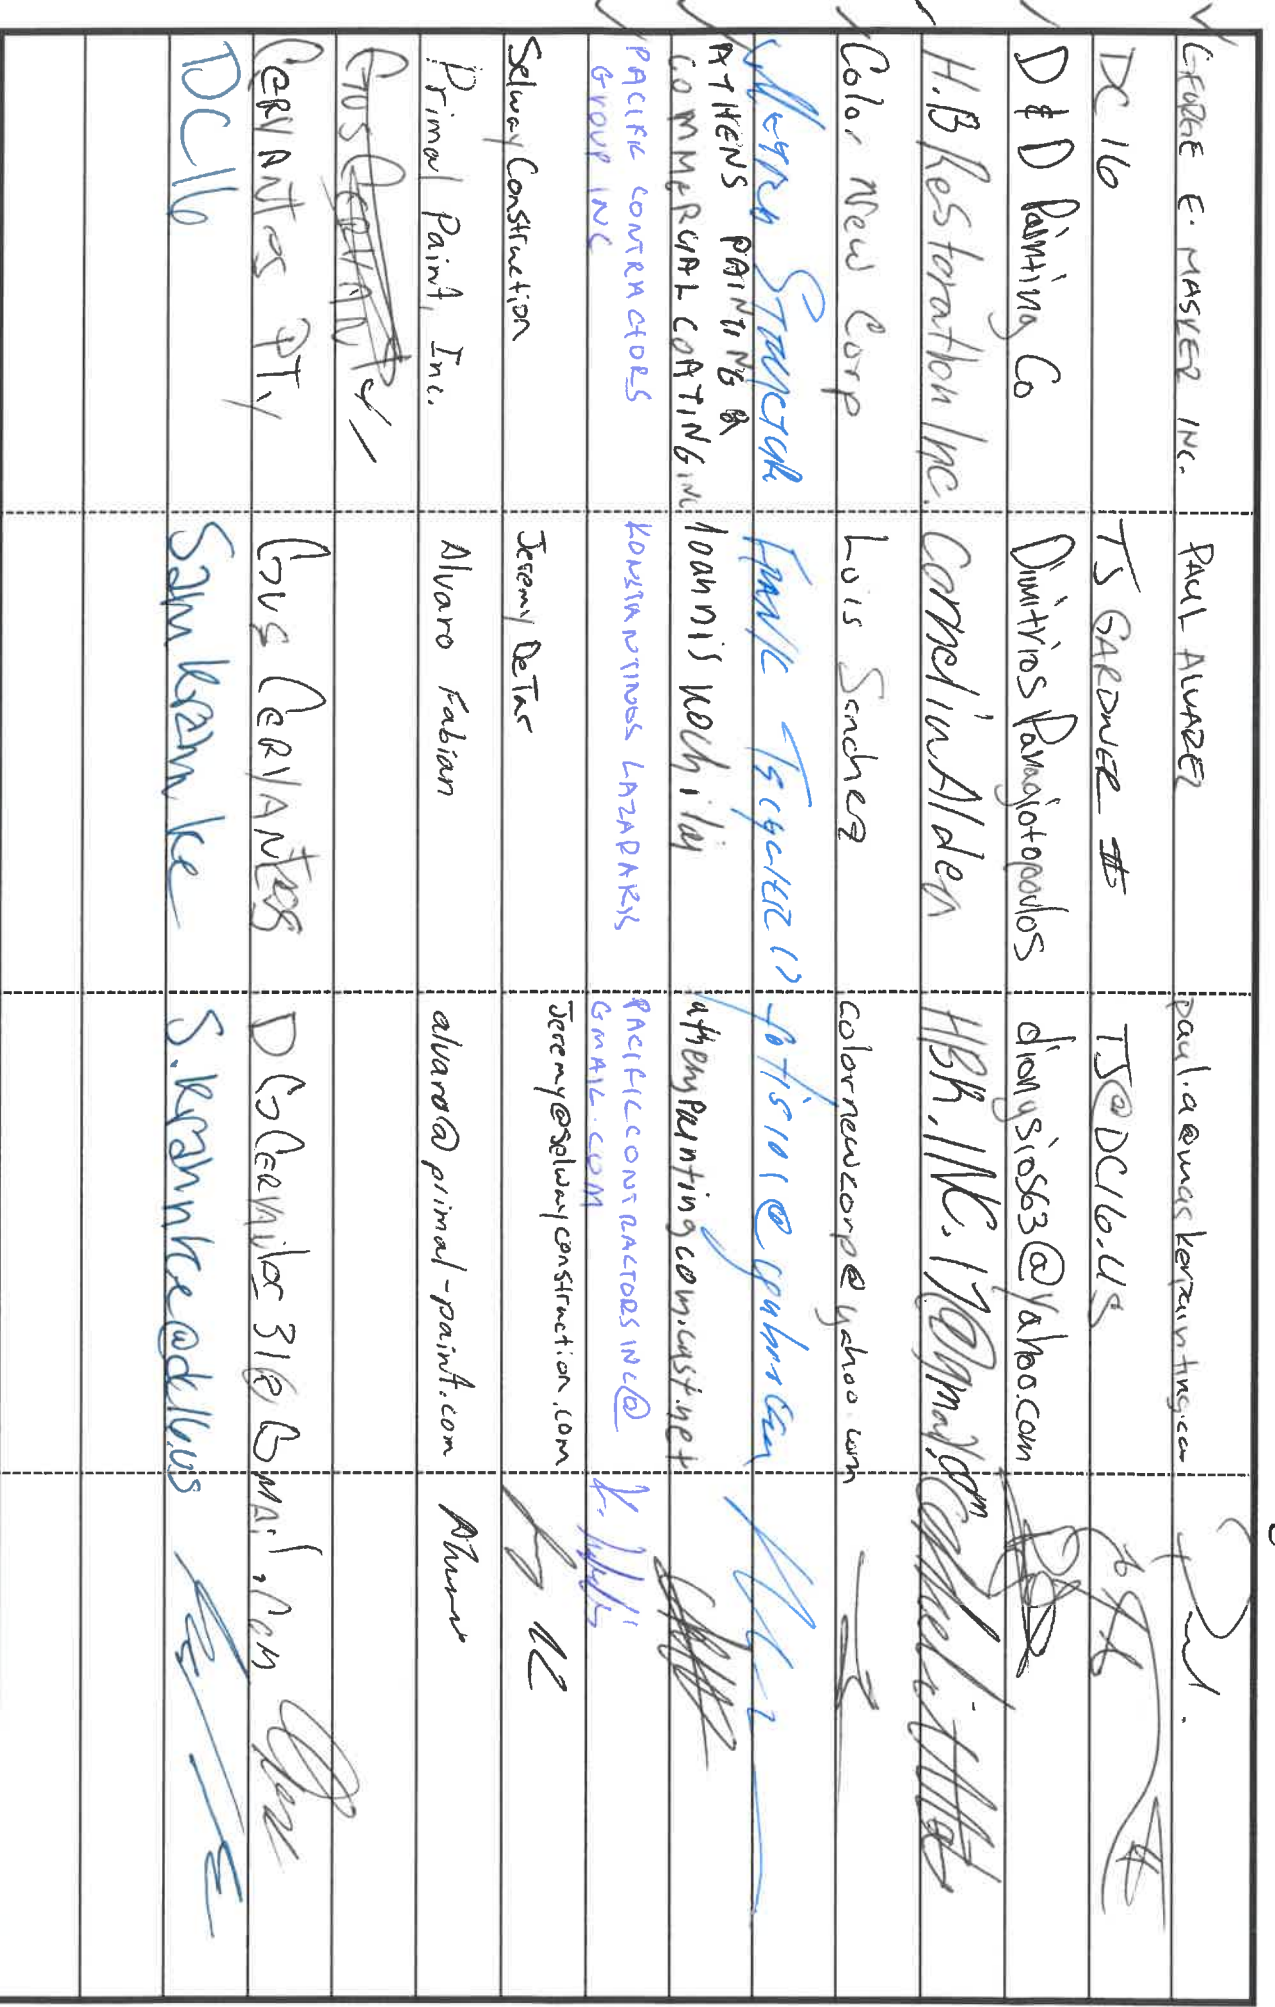 GEORGE E. MASKER INC. PAUL ALVAREZ paul.a@maskerpainting.com
DC 16 TJ GARDNER TJ@DC16.US
D & D Painting Co Dimitrios Panagiotopoulos dionysios63@yahoo.com
H.B Restorathon Inc. Cornelin Alden HBR.INC.17@gmail.com
Color New Corp Luis Sanchez colornewcorp@yahoo.com
fotis101@
ATHENS PAINTING &
COMMERCIAL COATING INC Ioannis athenspainting@comcast.net
PACIFIC CONTRACTORS KONSTANTINOS LAZARAKIS PACIFICCONTRACTORSINC@
GROUP INC GMAIL.COM
Selway Construction Jeremy DeTar Jeremy@selwayconstruction.com
Primal Paint, Inc. Alvaro Fabian alvaro@primal-paint.com
CERVANTES PT, Gus CERVANTES
DC16 Sam Krahnke S.Krahnke@dc16.us